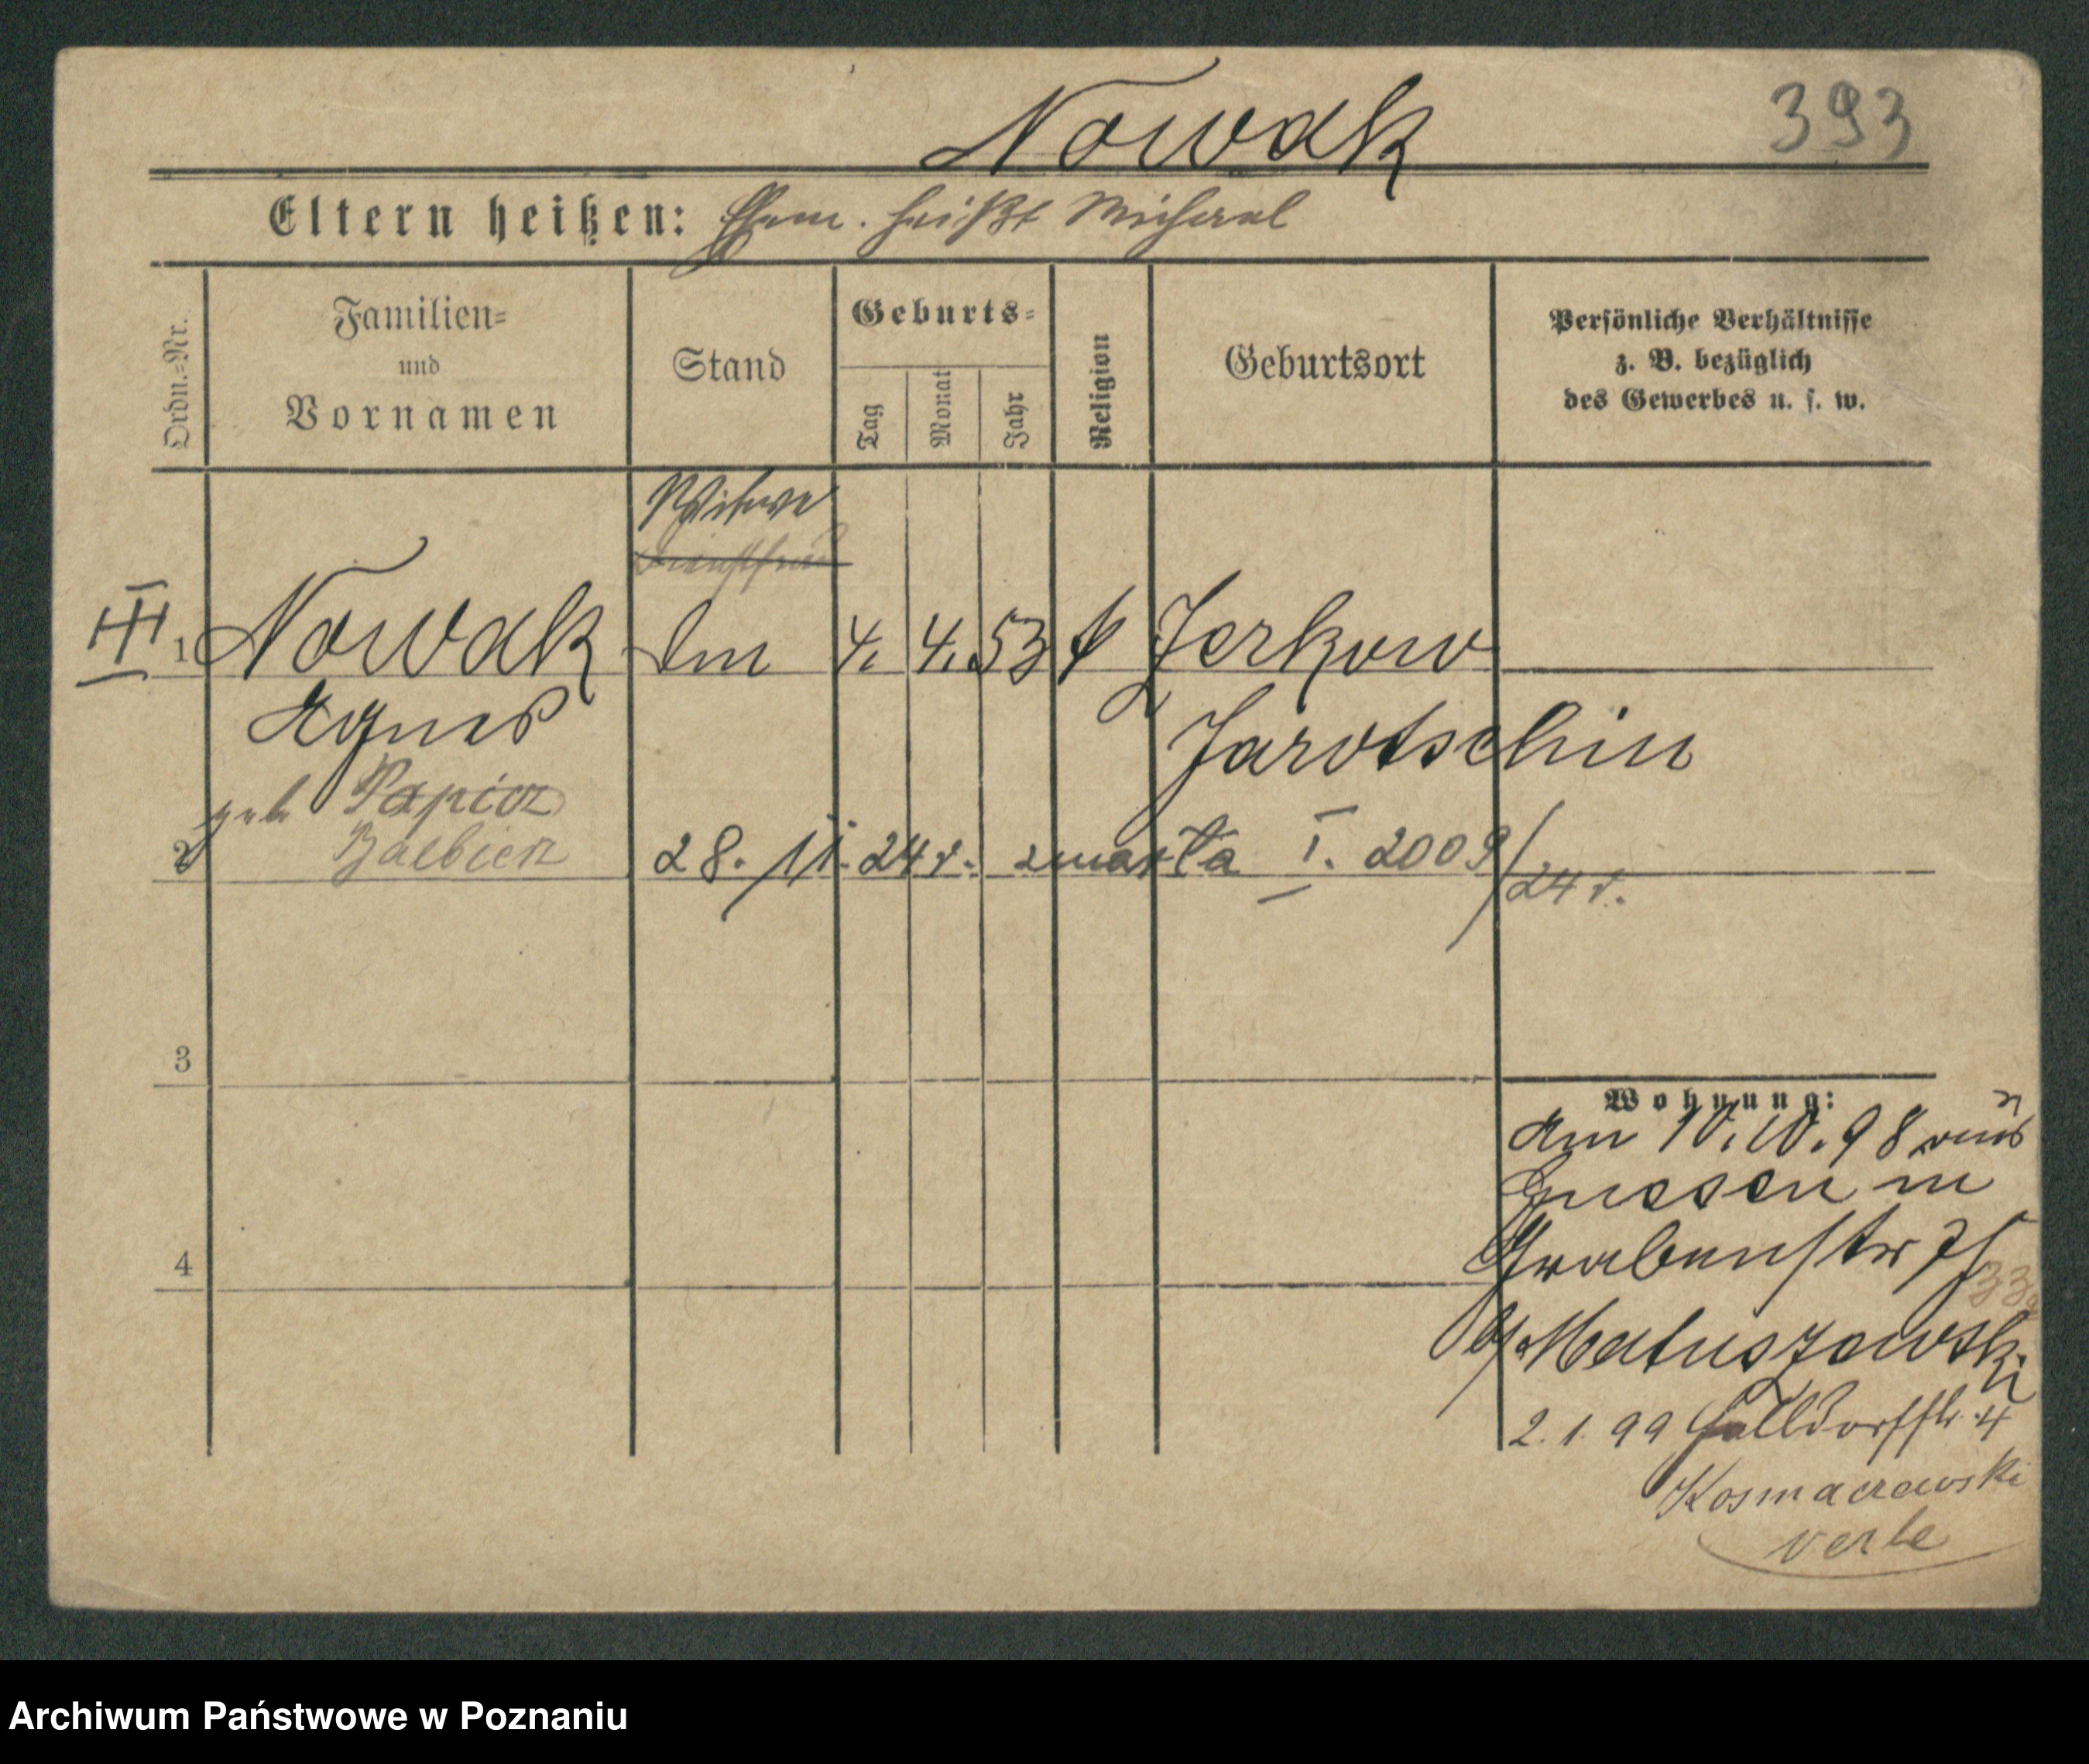 Nowak
393
Eltern heißen: Ehem. heißt Michael
Ordn.-Nr.
Familien-
und
Vornamen
Stand
Geburts-
Tag
Monat
Jahr
Religion
Geburtsort
Persönliche Verhältnisse
z. B. bezüglich
des Gewerbes u. s. w.
Witwe
III 1 Nowak 4. 4. 53 Zerkow
Agnes Jarotschin
geb Papierz
2 Balbierz 28. 11. 24 r. zmarła I. 2009/24 r.
3
Wohnung:
am 10.10.98 aus
Gnesen in
4
Grabenstr 25
b/ Matuszewski
2. 1. 99 Halldorfstr. 4
Kosmaczewski
verte
Archiwum Państwowe w Poznaniu